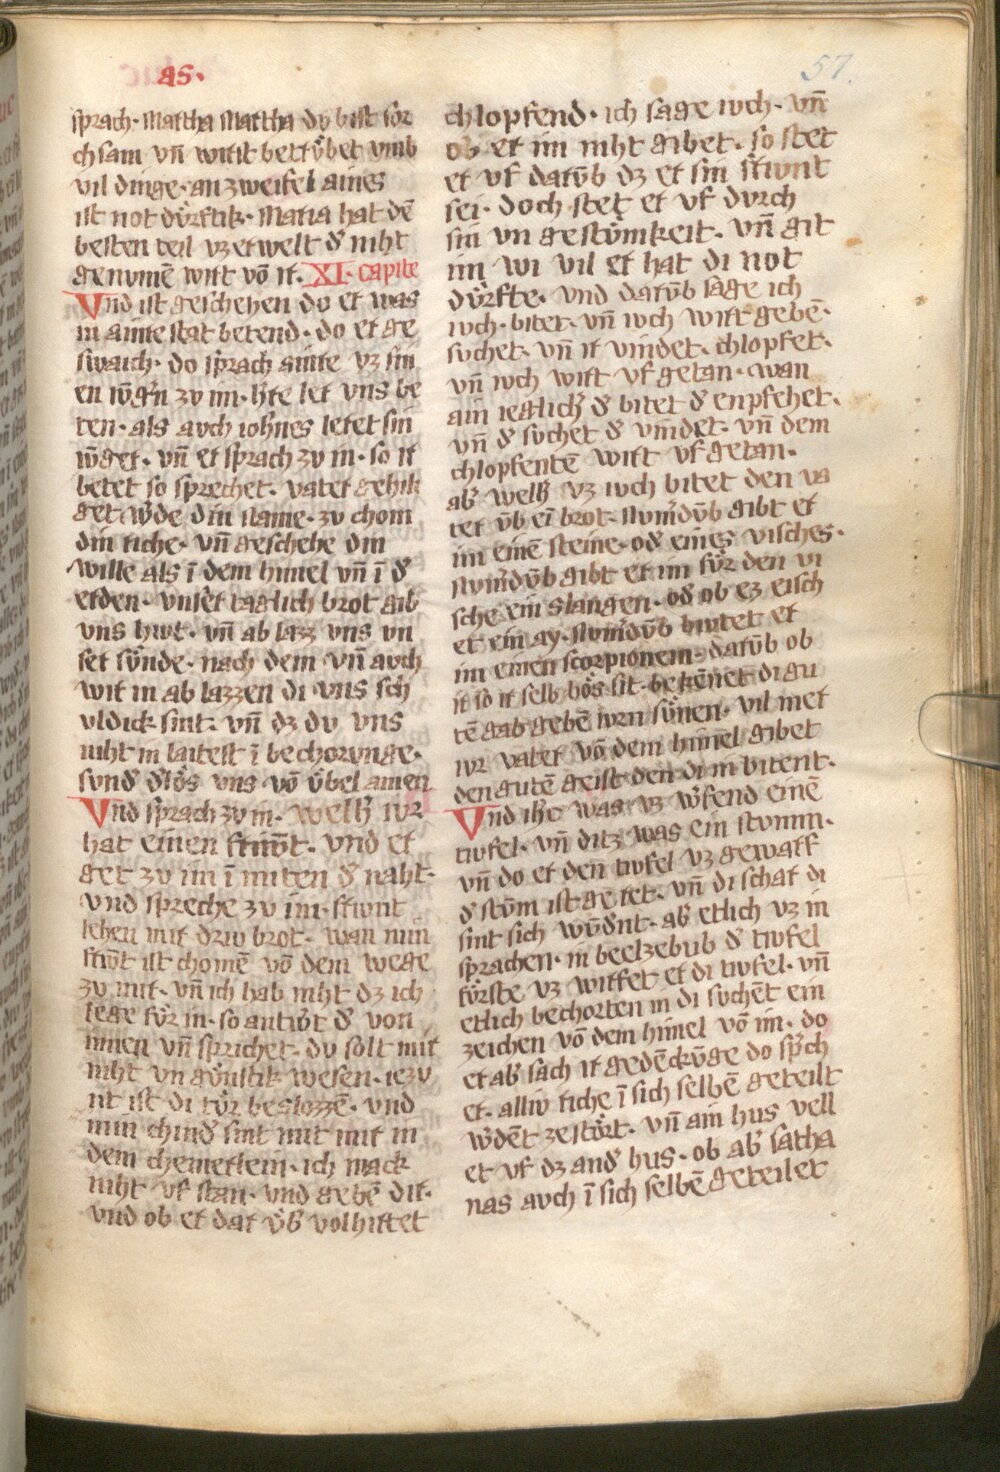 as.
57.
sprach· Martha Martha dv bist sor
chsam vn̄ wirst betrv̊bet vmb
vil dinge· an zweifel aines
ist not dv̊rftik· Maria hat dē
besten teil vz erwelt dˀ niht
genvmē wirt vō ir· XI· capite
Vnd ist geschehen do er was
in ainre stat betend· do er ge
swaich· do sprach ainre vz sin
en ivngˀn zv im· hˀre ler vns be
ten· als avch iohˀnes leret sin
ivnger· vn̄ er sprach zv in· so ir
betet so sprechet· vater gehili
get wˀde din name· zv chom
din riche· vn̄ geschehe din
wille als ī dem himel vn̄ ī dˀ
erden· vnser taglich brot gib
vns hivt· vn̄ ab lazz vns vn
ser sv̊nde· nach dem vn̄ avch
wir in ab lazzen di vns sch
vldick sint· vn̄ dz dv vns
niht in laitest ī bechorvnge·
svndˀ dˀlo̊s vns vō v̊bel amen
Vnd sprach zv in· welhˀ ivr
hat einen frivnt· vnd er
get zv im ī miten dˀ naht·
vnd spreche zv im· frivnt
lehen mir driv brot· wan min
frivnt ist chomē vō dem wege
zv mir· vn̄ ich hab niht dz ich
lege fv̊r in· so antwrt dˀ von
innen vn̄ sprichet· dv solt mir
niht vn gv̊nstik wesen· iezv
nt ist di tv̊r beslozzē· vnd
min chindˀ sint mit mir in
dem chemerlein· ich mack
niht vf stan· vnd gebē dir·
vnd ob er dar v̊bˀ volhirtet
chlopfend· ich sage ivch· vn̄
ob er im niht gibet· so stet
er vf darvb dz er sin frivnt
sei· doch stet er vf dvrch
sin vn gestv̊mkeit· vn̄ git
im wi vil er hat di not
dv̊rfte· vnd darvb sage ich
ivch· bitet· vn̄ ivch wirt gebē·
svchet· vn̄ ir vindet· chlopfet·
vn̄ ivch wirt vf getan· wan
ain ieglichˀ dˀ bitet dˀ enpfehet·
vn̄ dˀ svchet dˀ vindet· vn̄ dem
chlopfentē wirt vf getan·
abˀ welhˀ vz ivch bitet den va
ter v̄b ei brot· nvmˀdv̄b gibt er
im einē steine· odˀ eines visches·
nvmˀdv̄b gibt er im fv̊r den vi
sche ein slangen· odˀ ob ez eisch
et ein ay· nvmˀdv̄b bivtet er
im einen scorpionem· darvb ob
ir so ir selb bo̊s sit· bekēnet di gu
tē gab gebē ivrn sv̊nen· vil mer
ivr vater vō dem himel gibet
den gutē geist den di in bitent·
Vnd ihˀc was vz wˀfend einē
tivfel· vn̄ ditz was ein stvmm·
vn̄ do er den tivfel vz gewarf
dˀ stv̄m ist geret· vn̄ di schar di
sint sich wv̄dˀnt· abˀ etlich vz in
sprachen· in beelzebub dˀ tivfel
fv̊rste vz wirfet er di tivfel· vn̄
etlich bechorten in di svchēt ein
zeichen vō dem himel vō im· do
er abˀ sach ir gedēckv̄ge do sprˀch
er· alliv riche ī sich selbē geteilt
wˀdēt zesto̊rt· vn̄ ain hus vell
et vf dz andˀ hus· ob abˀ satha
nas avch ī sich selbē geteilet